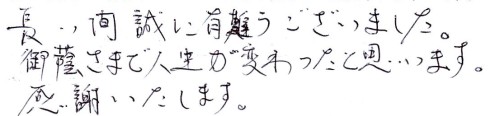 長い間誠に有難うございました。
御蔭さまで人生が変わったと思います。
感謝いたします。